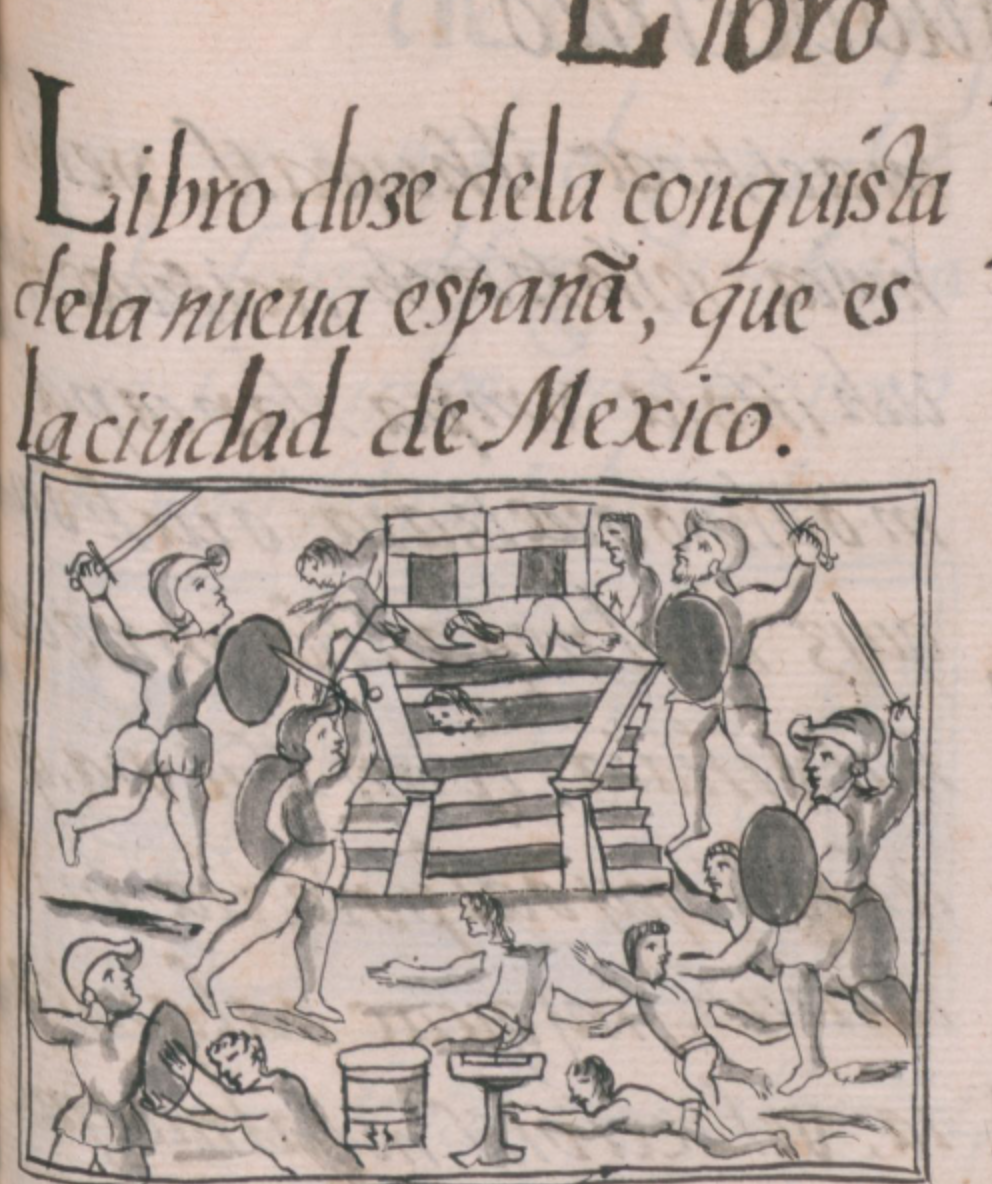 Libro
Libro doze dela conquista
dela nueua espanã, que es
la ciudad de Mexico.